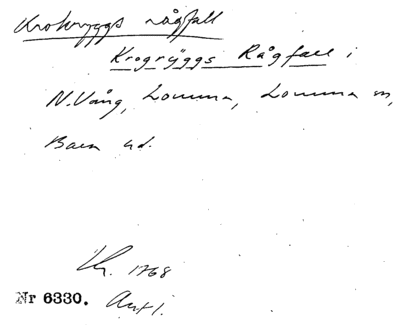 Krokryggs rågfall
Krogrÿggs Rågfall i
N. Vång, Lomma, Lomma sn,
Bara hd.
1768
Nr 6330.